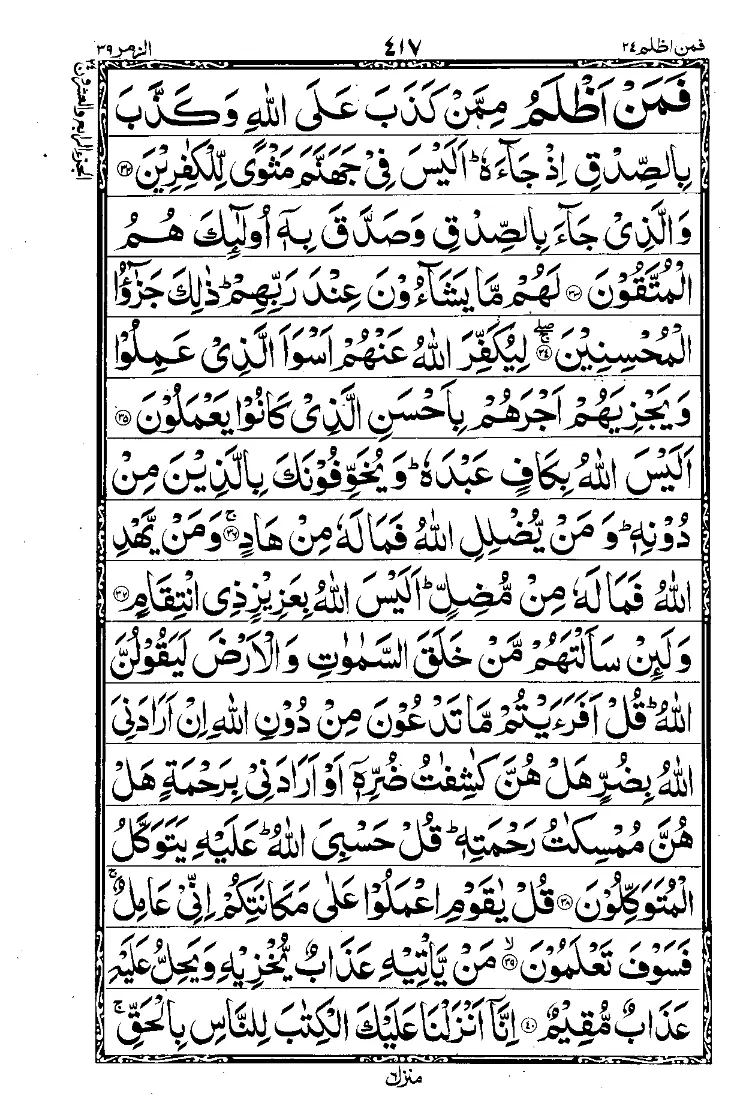 فمن اظلم ٢٤
٤١٧
الزمر ٣٩
الجزء الرابع والعشرون
فَمَنْ اَظْلَمُ مِمَّنْ كَذَبَ عَلَى اللّٰهِ وَكَذَّبَ
بِالصِّدْقِ اِذْ جَآءَهٗ ؕ اَلَيْسَ فِىْ جَهَنَّمَ مَثْوًى لِّلْكٰفِرِيْنَ ﴿۳۲﴾
وَالَّذِىْ جَآءَ بِالصِّدْقِ وَصَدَّقَ بِهٖۤ اُولٰٓئِكَ هُمُ
الْمُتَّقُوْنَ ﴿۳۳﴾ لَهُمْ مَّا يَشَآءُوْنَ عِنْدَ رَبِّهِمْ ؕ ذٰلِكَ جَزٰٓؤُا
الْمُحْسِنِيْنَ ﴿۳۴﴾ لِيُكَفِّرَ اللّٰهُ عَنْهُمْ اَسْوَاَ الَّذِىْ عَمِلُوْا
وَيَجْزِيَهُمْ اَجْرَهُمْ بِاَحْسَنِ الَّذِىْ كَانُوْا يَعْمَلُوْنَ ﴿۳۵﴾
اَلَيْسَ اللّٰهُ بِكَافٍ عَبْدَهٗ ؕ وَيُخَوِّفُوْنَكَ بِالَّذِيْنَ مِنْ
دُوْنِهٖ ؕ وَمَنْ يُّضْلِلِ اللّٰهُ فَمَا لَهٗ مِنْ هَادٍ ۚ ﴿۳۶﴾ وَمَنْ يَّهْدِ
اللّٰهُ فَمَا لَهٗ مِنْ مُّضِلٍّ ؕ اَلَيْسَ اللّٰهُ بِعَزِيْزٍ ذِى انْتِقَامٍ ﴿۳۷﴾
وَلَئِنْ سَاَلْتَهُمْ مَّنْ خَلَقَ السَّمٰوٰتِ وَالْاَرْضَ لَيَقُوْلُنَّ
اللّٰهُ ؕ قُلْ اَفَرَءَيْتُمْ مَّا تَدْعُوْنَ مِنْ دُوْنِ اللّٰهِ اِنْ اَرَادَنِىَ
اللّٰهُ بِضُرٍّ هَلْ هُنَّ كٰشِفٰتُ ضُرِّهٖۤ اَوْ اَرَادَنِىْ بِرَحْمَةٍ هَلْ
هُنَّ مُمْسِكٰتُ رَحْمَتِهٖ ؕ قُلْ حَسْبِىَ اللّٰهُ ؕ عَلَيْهِ يَتَوَكَّلُ
الْمُتَوَكِّلُوْنَ ﴿۳۸﴾ قُلْ يٰقَوْمِ اعْمَلُوْا عَلٰى مَكَانَتِكُمْ اِنِّىْ عَامِلٌ ۚ
فَسَوْفَ تَعْلَمُوْنَ ۙ ﴿۳۹﴾ مَنْ يَّاْتِيْهِ عَذَابٌ يُّخْزِيْهِ وَيَحِلُّ عَلَيْهِ
عَذَابٌ مُّقِيْمٌ ﴿۴۰﴾ اِنَّاۤ اَنْزَلْنَا عَلَيْكَ الْكِتٰبَ لِلنَّاسِ بِالْحَقِّ ۚ
منزل ٦